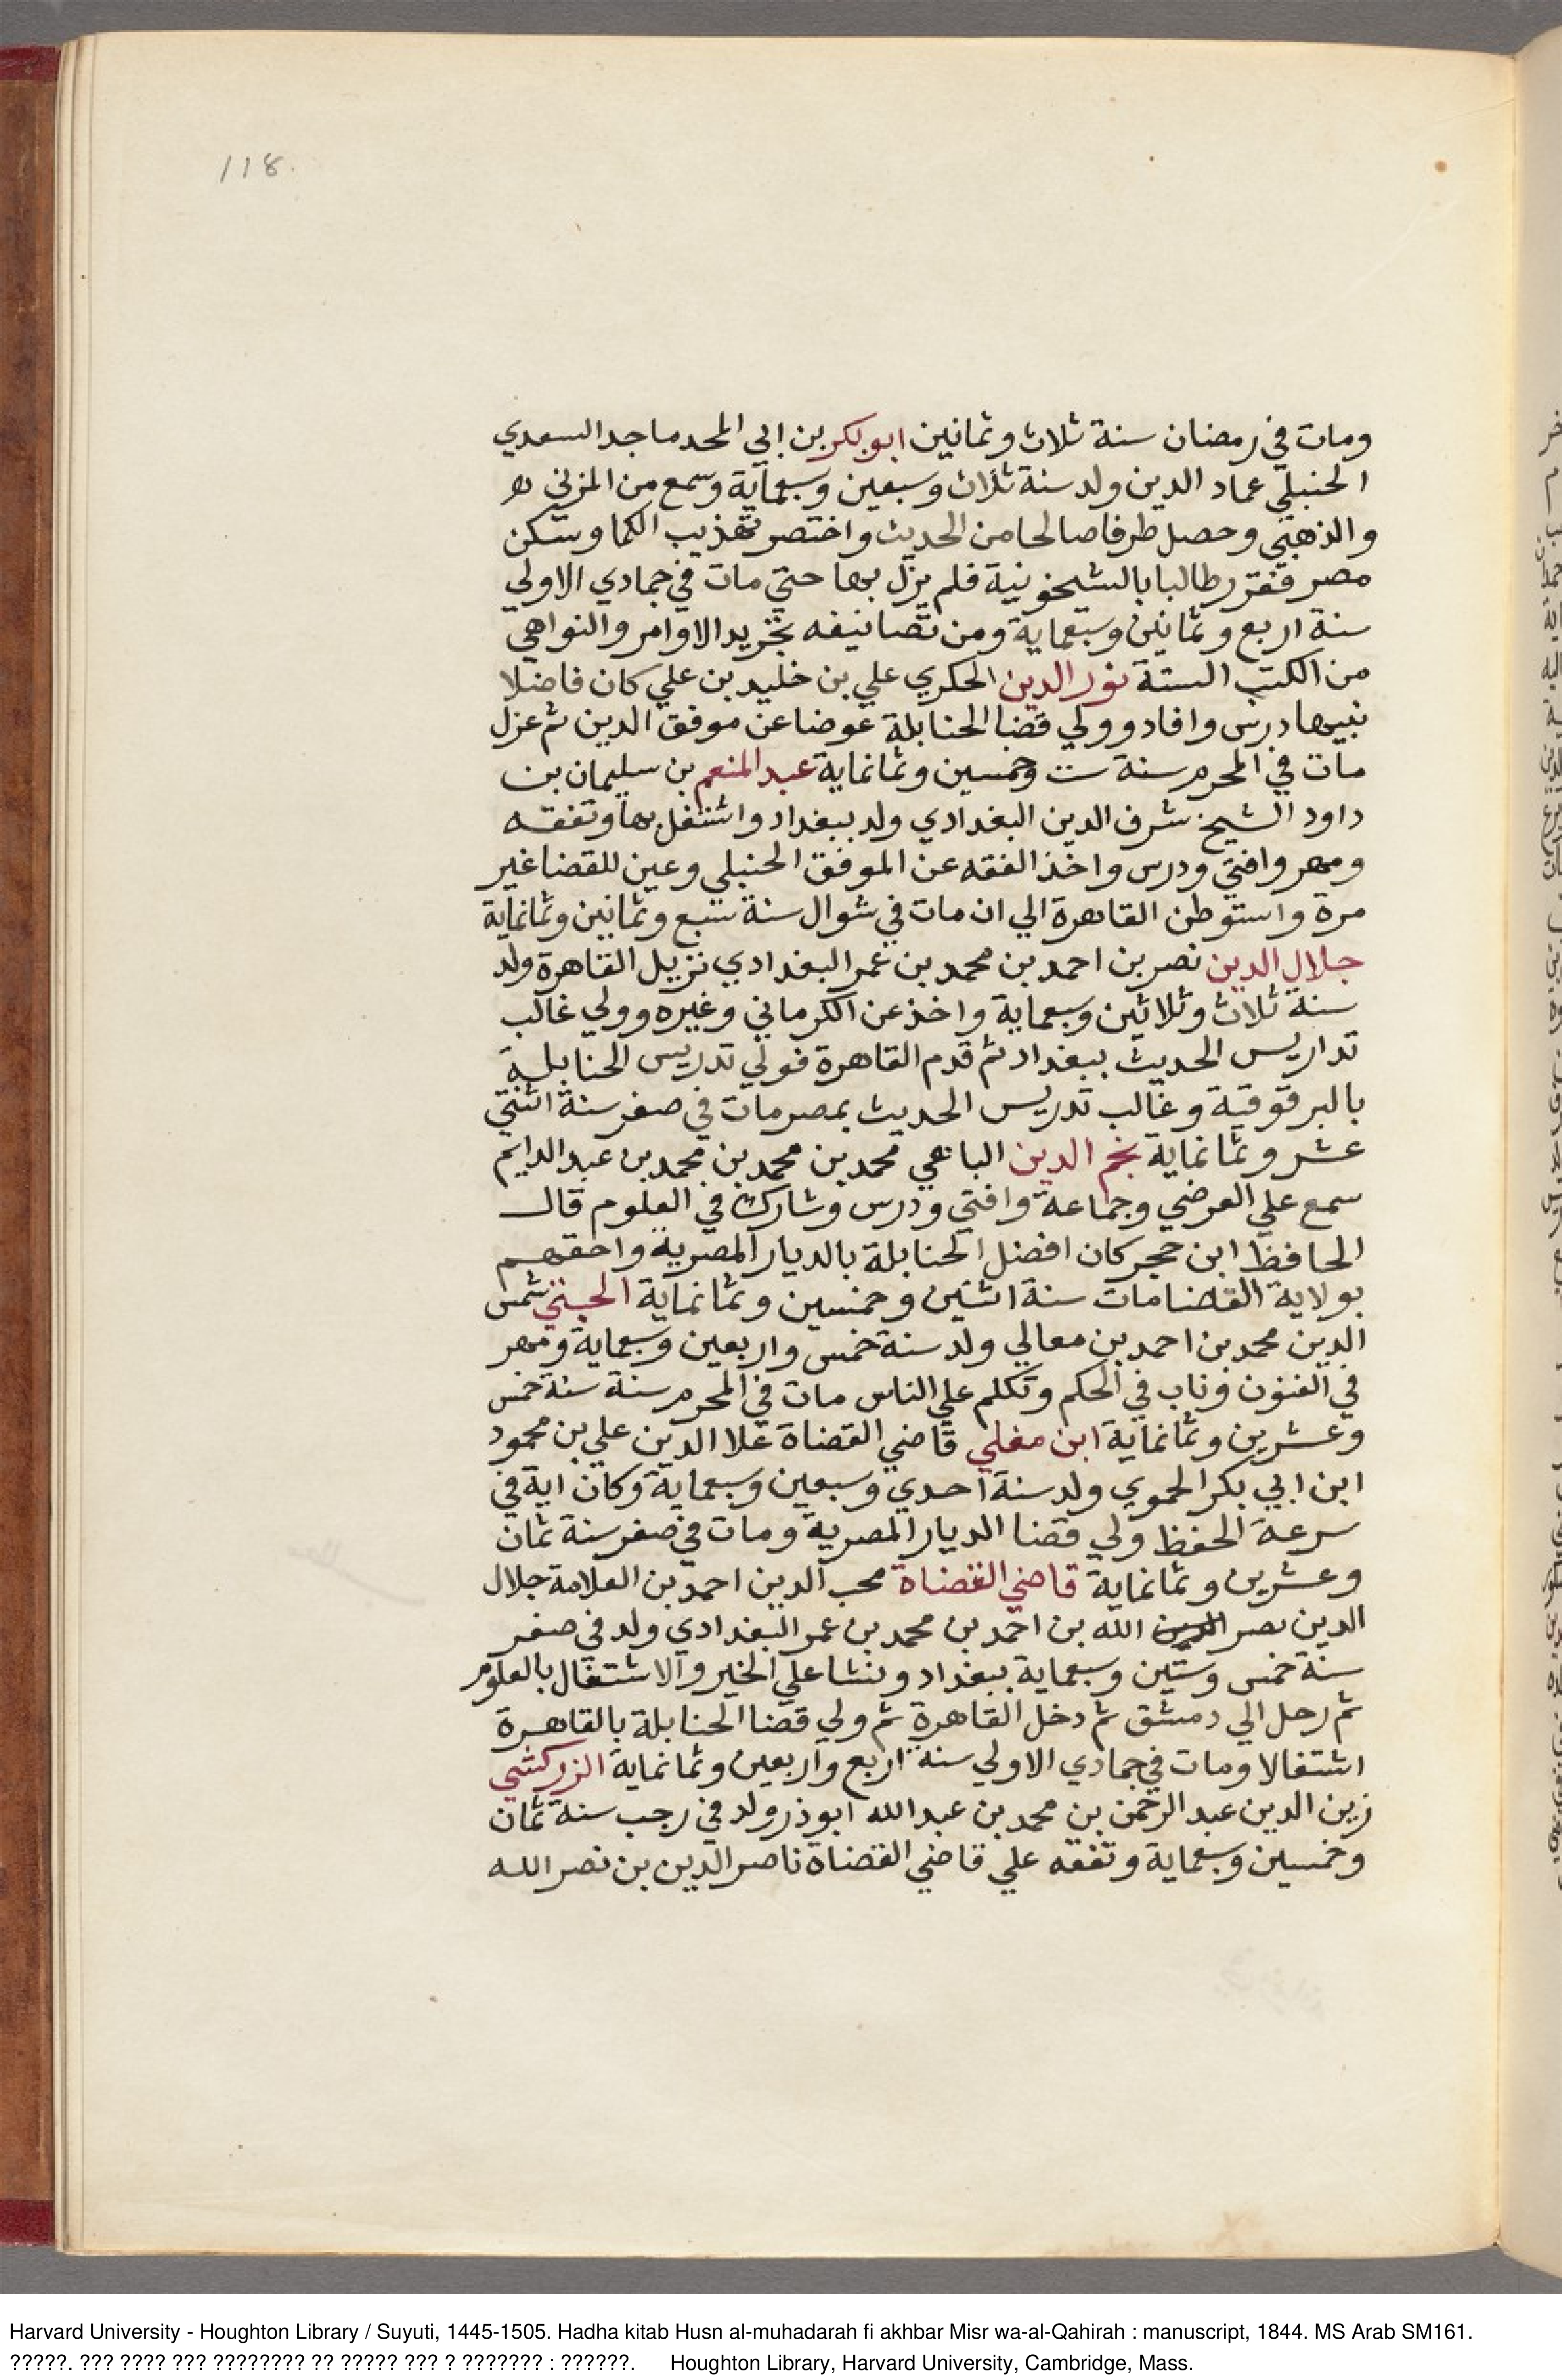 118.
ومات في رمضان سنة ثلاث وثمانين ابو بكر بن ابي المجد ماجد السعدي
الحنبلي عماد الدين ولد سنة ثلاث وسبعين وسبعماية وسمع من المزني
والذهبي وحصل طرفا صالحا من الحديث واختصر تهذيب الكما وسكن
مصر فقرر طالبا بالشيخونية فلم يزل بها حتي مات في جمادي الاولي
سنة اربع وثمانين وسبعماية ومن تصانيفه تجريد الاوامر والنواهي
من الكتب الستة نور الدين الحكري علي بن خليد بن علي كان فاضلا
نبيها درس وافاد وولي قضا الحنابلة عوضا عن موفق الدين ثم عزل
مات في المحرم سنة ست وخمسين وثمانماية عبد المنعم بن سليمان بن
داود الشيخ شرف الدين البغدادي ولد ببغداد واشتغل بها وتفقه
ومهر وافتي ودرس واخذ الفقه عن الموفق الحنبلي وعين للقضا غير
مرة واستوطن القاهرة الي ان مات في شوال سنة سبع وثمانين وثمانماية
جلال الدين نصر بن احمد بن محمد بن عمر البغدادي نزيل القاهرة ولد
سنة ثلاث وثلاثين وسبعماية واخذ عن الكرماني وغيره وولي غالب
تداريس الحديث ببغداد ثم قدم القاهرة فولي تدريس الحنابلة
بالبرقوقية وغالب تدريس الحديث بمصر مات في صفر سنة اثنتي
عشر وثمانماية نجم الدين الباهي محمد بن محمد بن محمد بن عبد الدايم
سمع علي العرضي وجماعة وافتي ودرس وشارك في العلوم قال
الحافظ ابن حجر كان افضل الحنابلة بالديار المصرية واحقهم
بولاية القضا مات سنة اثنين وخمسين وثمانماية الحبتي شمس
الدين محمد بن احمد بن معالي ولد سنة خمس واربعين وسبعماية ومهر
في الفنون وناب في الحكم وتكلم علي الناس مات في المحرم سنة سنة خمس
وعشرين وثمانماية ابن مغلي قاضي القضاة علا الدين علي بن محمود
ابن ابي بكر الحموي ولد سنة احدي وسبعين وسبعماية وكان اية في
سرعة الحفظ ولي قضا الديار المصرية ومات في صفر سنة ثمان
وعشرين وثمانماية قاضي القضاة محب الدين احمد بن العلامة جلال
الدين نصر الدين الله بن احمد بن محمد بن عمر البغدادي ولد في صفر
سنة خمس وستين وسبعماية ببغداد ونشا علي الخير والاشتغال بالعلوم
ثم رحل الي دمشق ثم دخل القاهرة ثم ولي قضا الحنابلة بالقاهرة
اشتغالا ومات في جمادي الاولي سنة اربع واربعين وثمانماية الزركشي
زين الدين عبد الرحمن بن محمد بن عبد الله ابو ذر ولد في رجب سنة ثمان
وخمسين وسبعماية وتفقه علي قاضي القضاة ناصر الدين بن نصر الله
Harvard University - Houghton Library / Suyuti, 1445-1505. Hadha kitab Husn al-muhadarah fi akhbar Misr wa-al-Qahirah : manuscript, 1844. MS Arab SM161.
?????. ??? ???? ??? ???????? ?? ????? ??? ? ??????? : ??????. Houghton Library, Harvard University, Cambridge, Mass.